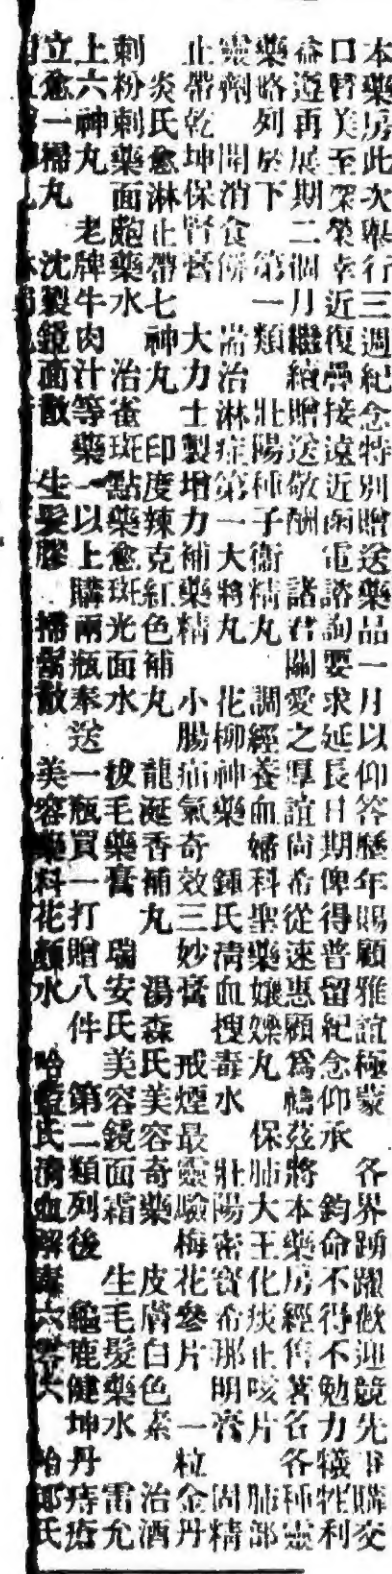 本藥房此次舉行三週紀念特別贈送藥品一月以仰答歷年賜顧雅誼極蒙　各界踴躍歡迎競先下購交
口暫美至深榮幸近復疊接遠近函電諮詢要求延長日期俾得普留紀念仰承　鈞命不得不勉力犧牲利
益遵再展期二個月繼續贈送敬酬　諸君關愛之厚誼尚希從速惠顧為禱茲將本藥房經售著名各種靈
藥略列於下　第一類　壯陽種子衛精丸　調經養血婦科聖藥孃孃丸　保肺大王化痰止咳片　肺部
靈劑　開消食餅　耑治淋症第一大將丸　花柳神藥　鍾氏清血搜毒水　壯陽密寶希那明膏　固精
止帶乾坤保腎膏　大力士製增力補藥精　小腸疝氣奇效三妙膏　戒煙最靈驗梅花參片　一粒金丹
炎氏愈淋止帶七神丸　印度辣克紅色補丸　龍涎香補丸　湯森氏美容奇藥　皮膚白色素　治酒
刺粉刺藥　面皰藥水　治雀斑點藥　愈斑光面水　拔毛藥膏　瑞安氏美容鏡面霜　生毛髮藥水　雷允
上六神丸　老牌牛肉汁等藥　以上購兩瓶奉送一瓶買一打贈八件　第二類列後　龜鹿健坤丹　痔瘡
立愈一掃丸　沈製鏡面散　生髮膠　掃雀散　美容藥料花顏水　哈藍氏清血解毒六零六　怡郎氏